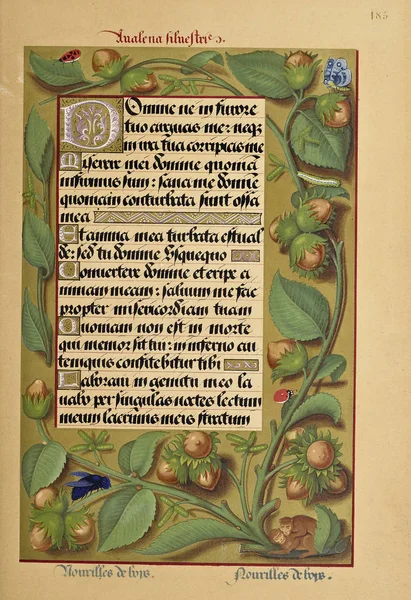 Aualena siluestris.
185
Domine ne in furore
tuo arguas me: neqȝ
in ira tua corripias me
Miserere mei domine quoniā
infirmus sum: sana me domine
quoniam conturbata sunt ossa
mea
Et anima mea turbata est ual
de: sed tu domine Usquequo
Conuertere domine et eripe a
nimam meam: saluum me fac
propter misericordiam tuam
Quoniam non est in morte
qui memor sit tui: in inferno au
tem quis confitebitur tibi
Laboraui in gemitu meo la
uabo per singulas noctes lectum
meum lacrimis meis stratum
Nouzilles de boys.
Nouzilles de boys.